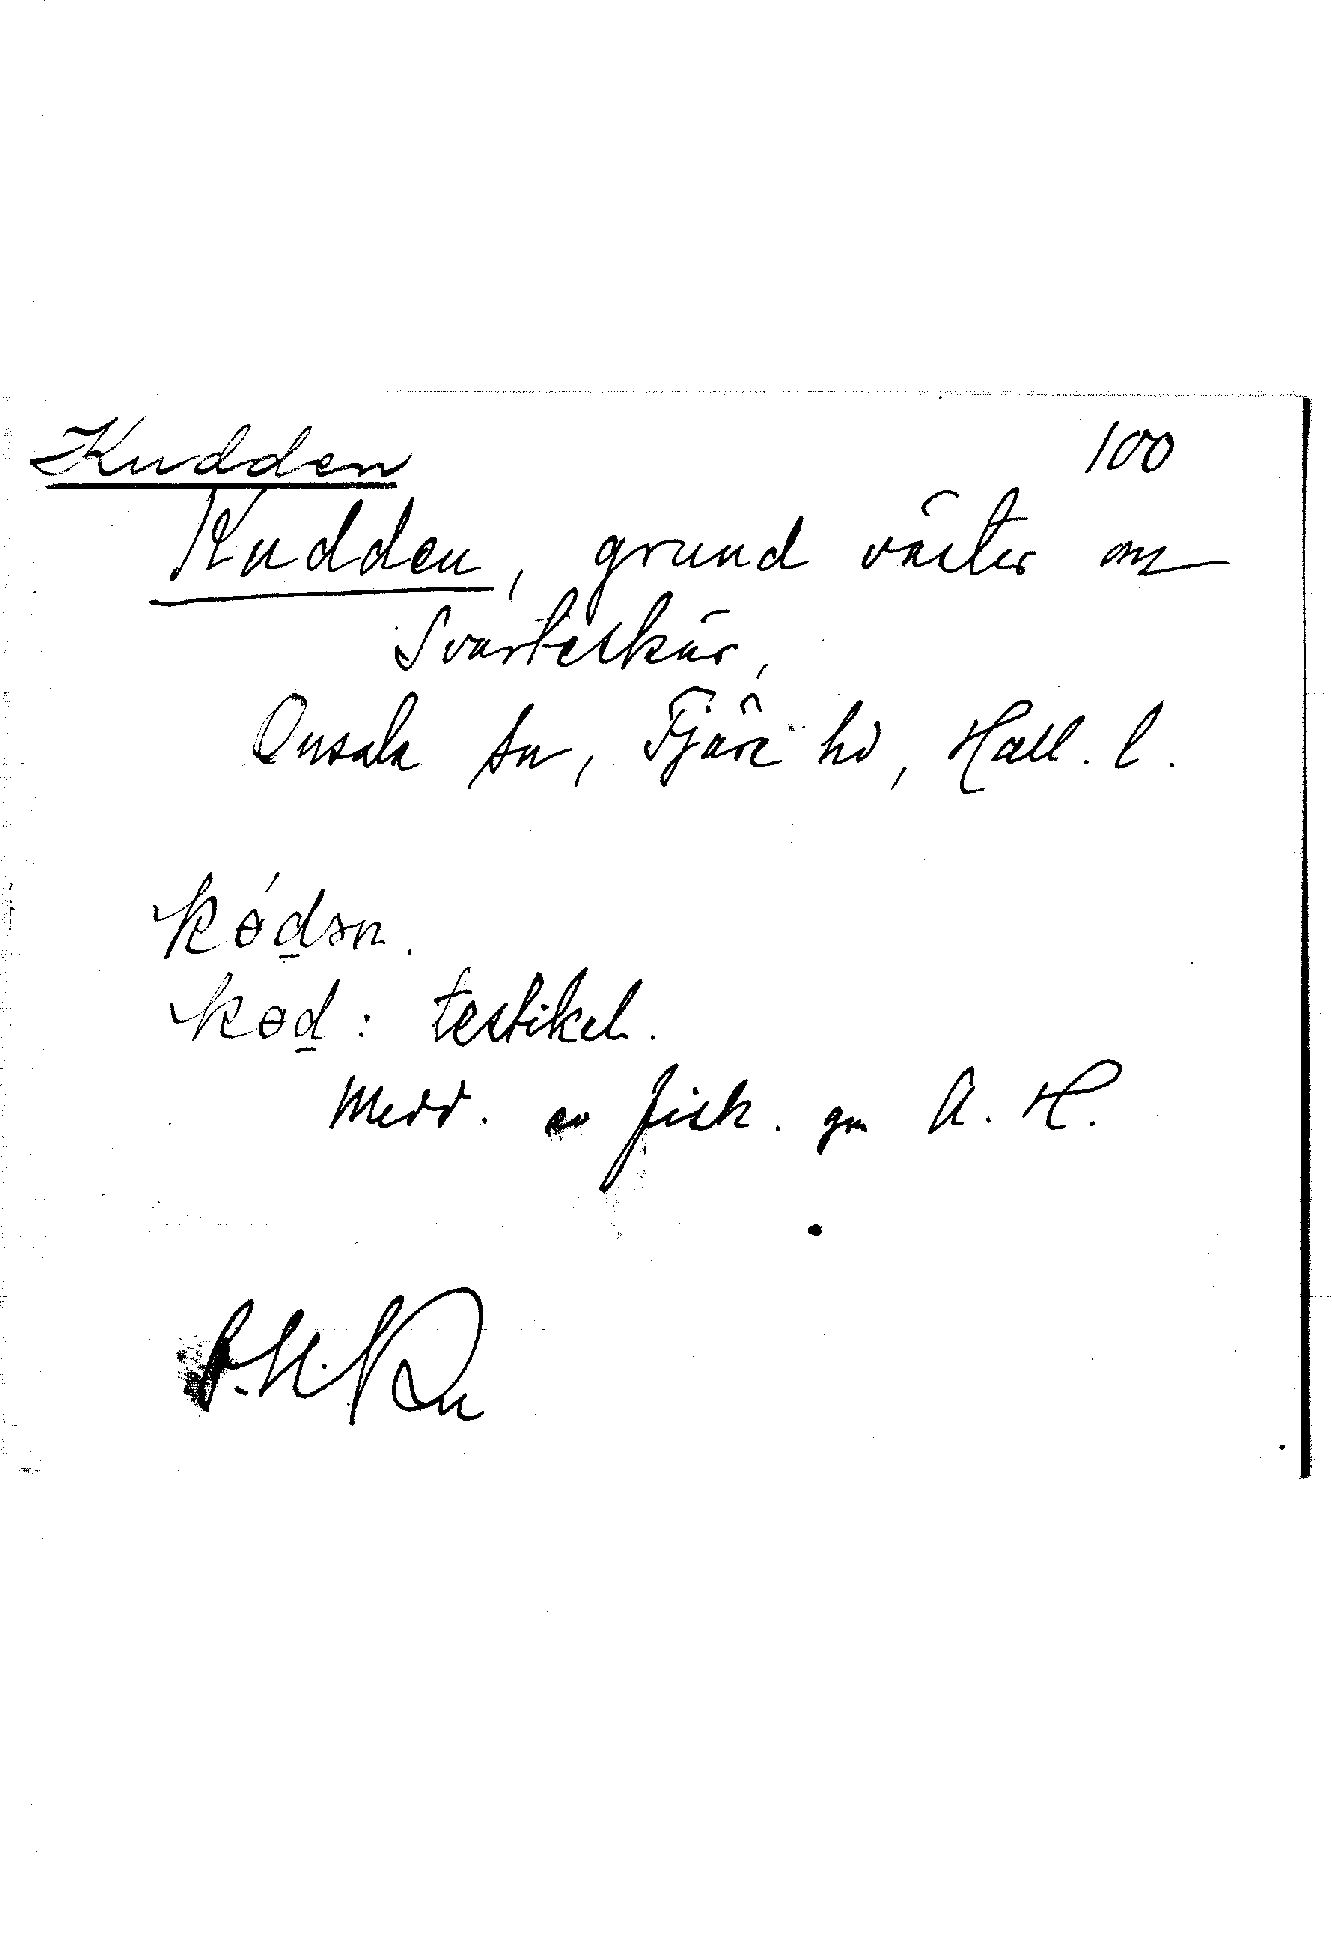 Kudden 100
Kudden, grund väster om
Svarteskär,
Onsala sn, Fjäre hd, Hall. l.
kɵ́d̲ən.
kɵd̲: testikel.
Medd. av fisk. gm A. H.